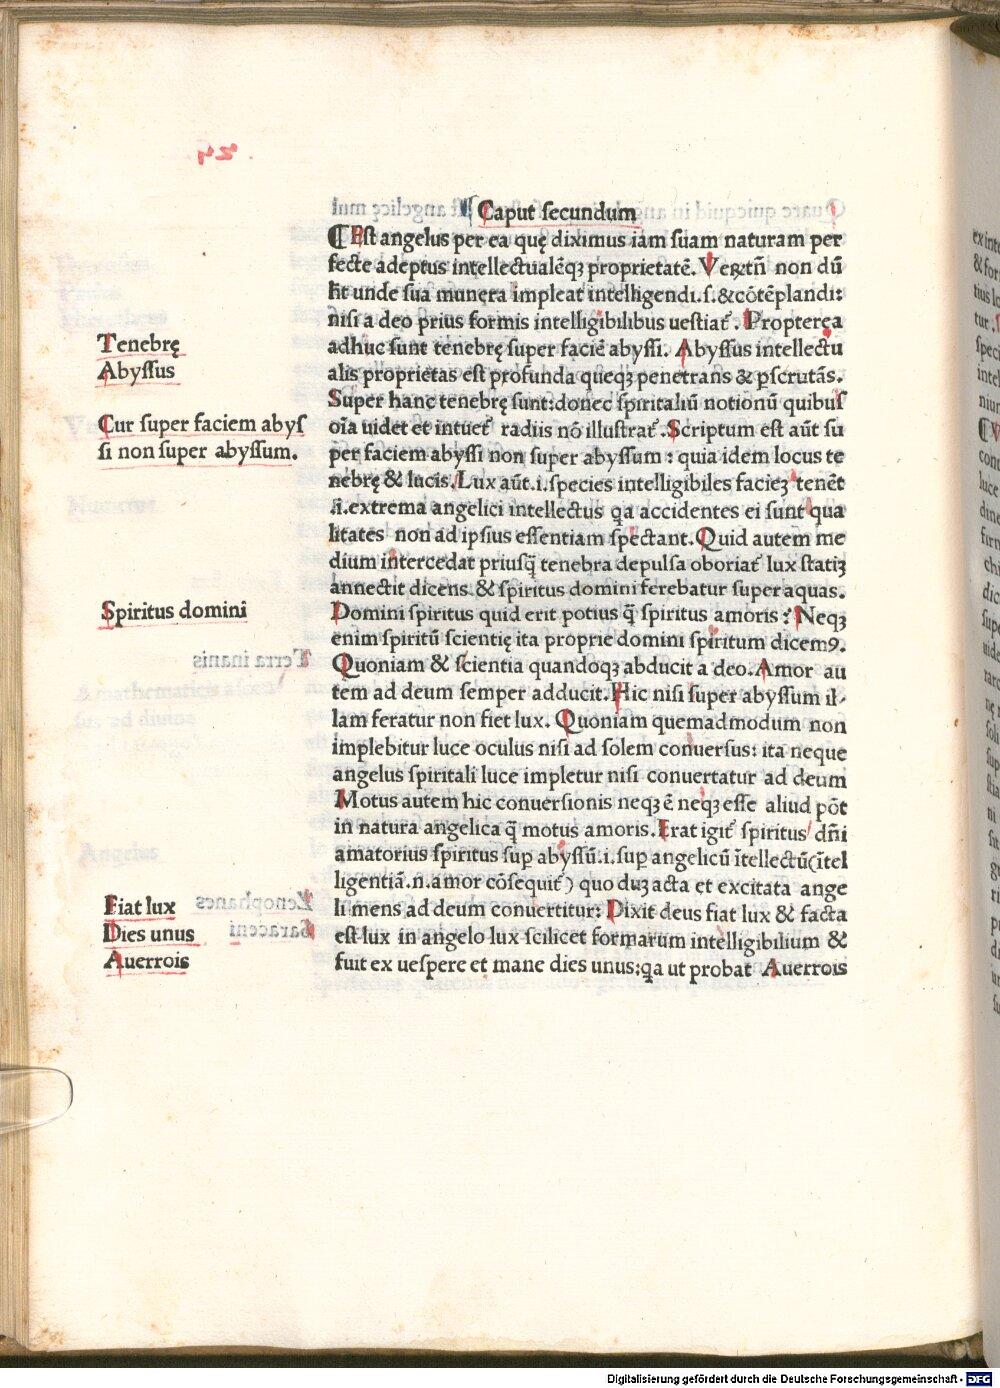 Caput secundum
¶ Est angelus per ea quę diximus iam suam naturam per
fecte adeptus intellectualēqꝫ proprietatē. Veꝝtñ non dū
ht unde sua munera impleat intelligendi.s.& cōtēplandi:
nisi a deo prius formis intelligibilibus uestiat᷑. Propterea
Tenebrę
adhuc sunt tenebrę super faciē abyssi. Abyssus intellectu
Abyssus
alis proprietas est profunda queqꝫ penetrans & pscrutās.
Super hanc tenebrę sunt: donec spiritaliū notionū quibus
Cur super faciem abys
oīa uidet et intuet᷑ radiis nō illustrat᷑. Scriptum est aūt su
si non super abyssum.
per faciem abyssi non super abyssum: quia idem locus te
nebrę & lucis. Lux aūt.i.species intelligibiles facieꝫ tenēt
.i.extrema angelici intellectus qa accidentes ei sunt qua
litates non ad ipsius essentiam spectant. Quid autem me
dium intercedat priusq̄ tenebra depulsa oboriat᷑ lux statiꝫ
annectit dicens. & spiritus domini ferebatur super aquas.
Spiritus domini
Domini spiritus quid erit potius q̄ spiritus amoris? Neqꝫ
enim spiritū scientię ita proprie domini spiritum dicemꝰ.
Quoniam & scientia quandoqꝫ abducit a deo. Amor au
tem ad deum semper adducit. Hic nisi super abyssum il-
lam feratur non fiet lux. Quoniam quemadmodum non
implebitur luce oculus nisi ad solem conuersus: ita neque
angelus spiritali luce impletur nisi conuertatur ad deum
Motus autem hic conuersionis neqꝫ ē neqꝫ esse aliud pōt
in natura angelica q̄ motus amoris. Erat igit᷑ spiritus dñi
amatorius spiritus suꝑ abyssū.i.suꝑ angelicū ītellectū (ītel
ligentiā.n.amor cōsequit᷑) quo duꝫ acta et excitata ange
Fiat lux
li mens ad deum conuertitur: Dixit deus fiat lux & facta
Dies unus
est lux in angelo lux scilicet formarum intelligibilium &
Auerrois
fuit ex uespere et mane dies unus: qa ut probat Auerrois
Digitalisierung gefördert durch die Deutsche Forschungsgemeinschaft - DFG